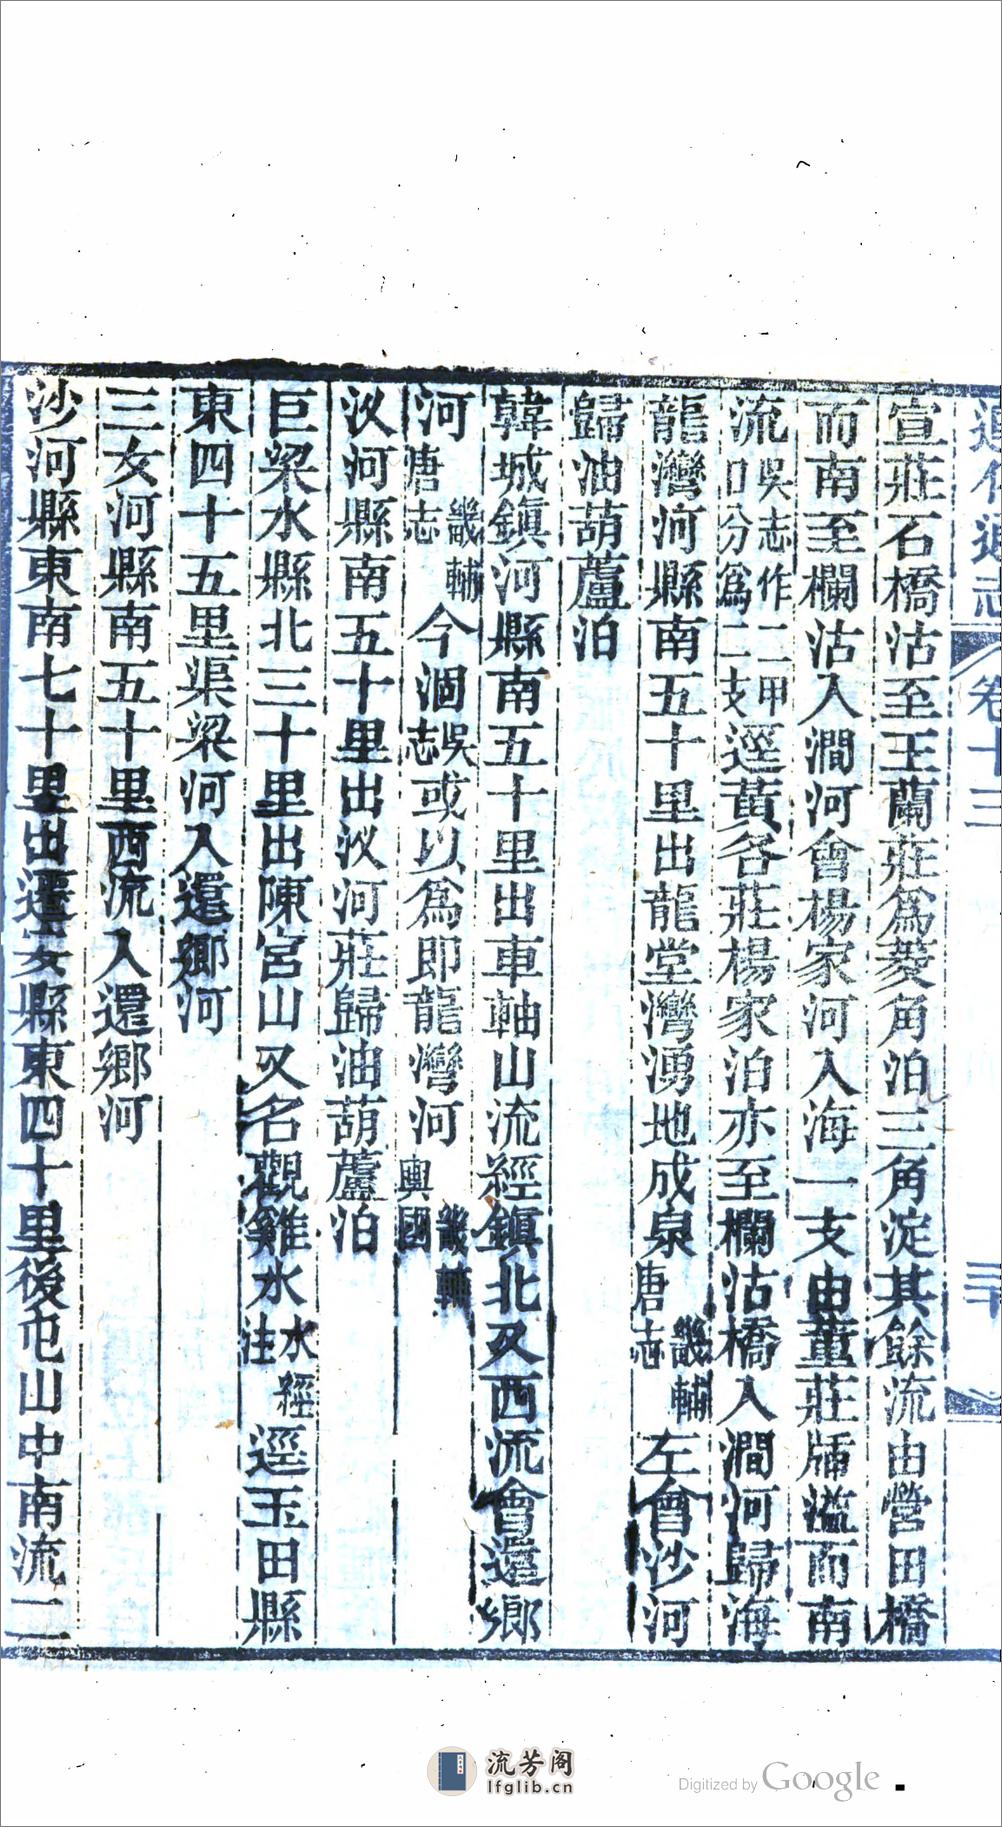 遵化通志 卷十三 三十
宣莊石橋沽至王蘭莊爲菱角泊三角淀其餘流由營田橋
而南至欄沽入澗河會楊家河入海一支由董莊牐溢而南
流吳志作二甲口分爲二支逕黃各莊楊家泊亦至欄沽橋入澗河歸海
龍灣河縣南五十里出龍堂灣湧地成泉畿輔唐志左會沙河
歸油葫蘆泊
韓城鎮河縣南五十里出車軸山流經鎮北又西流會還鄉
河畿輔唐志今涸吳志或以爲即龍灣河畿輔輿國
汊河縣南五十里出汊河莊歸油葫蘆泊
巨梁水縣北三十里出陳宮山又名觀雞水水經注逕玉田縣
東四十五里渠梁河入還鄉河
三女河縣南五十里西流入還鄉河
沙河縣東南七十里出遷安縣東四十里後屯山中南流二
流芳阁
lfglib.cn
Digitized by Google